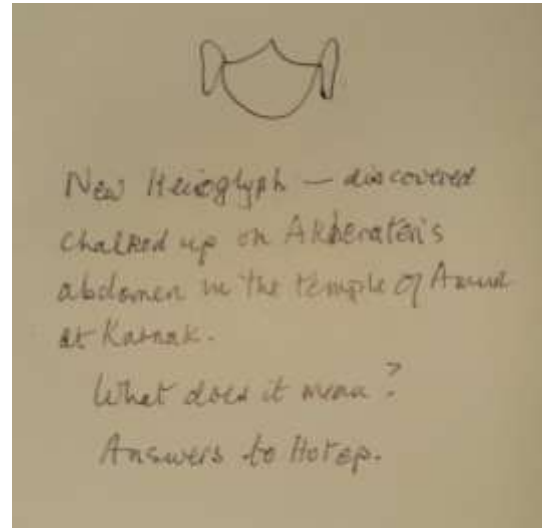 New Heiroglyph — discovered
chalked up on Akhenaten's
abdomen in the temple of Amun
at Karnak.
What does it mean?
Answers to Hotep.